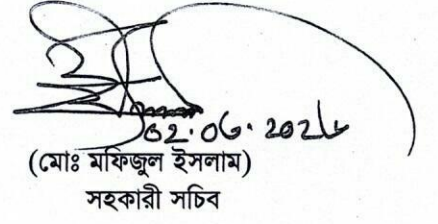 02.06.202
(মোঃ মফিজুল ইসলাম)
সহকারী সচিব